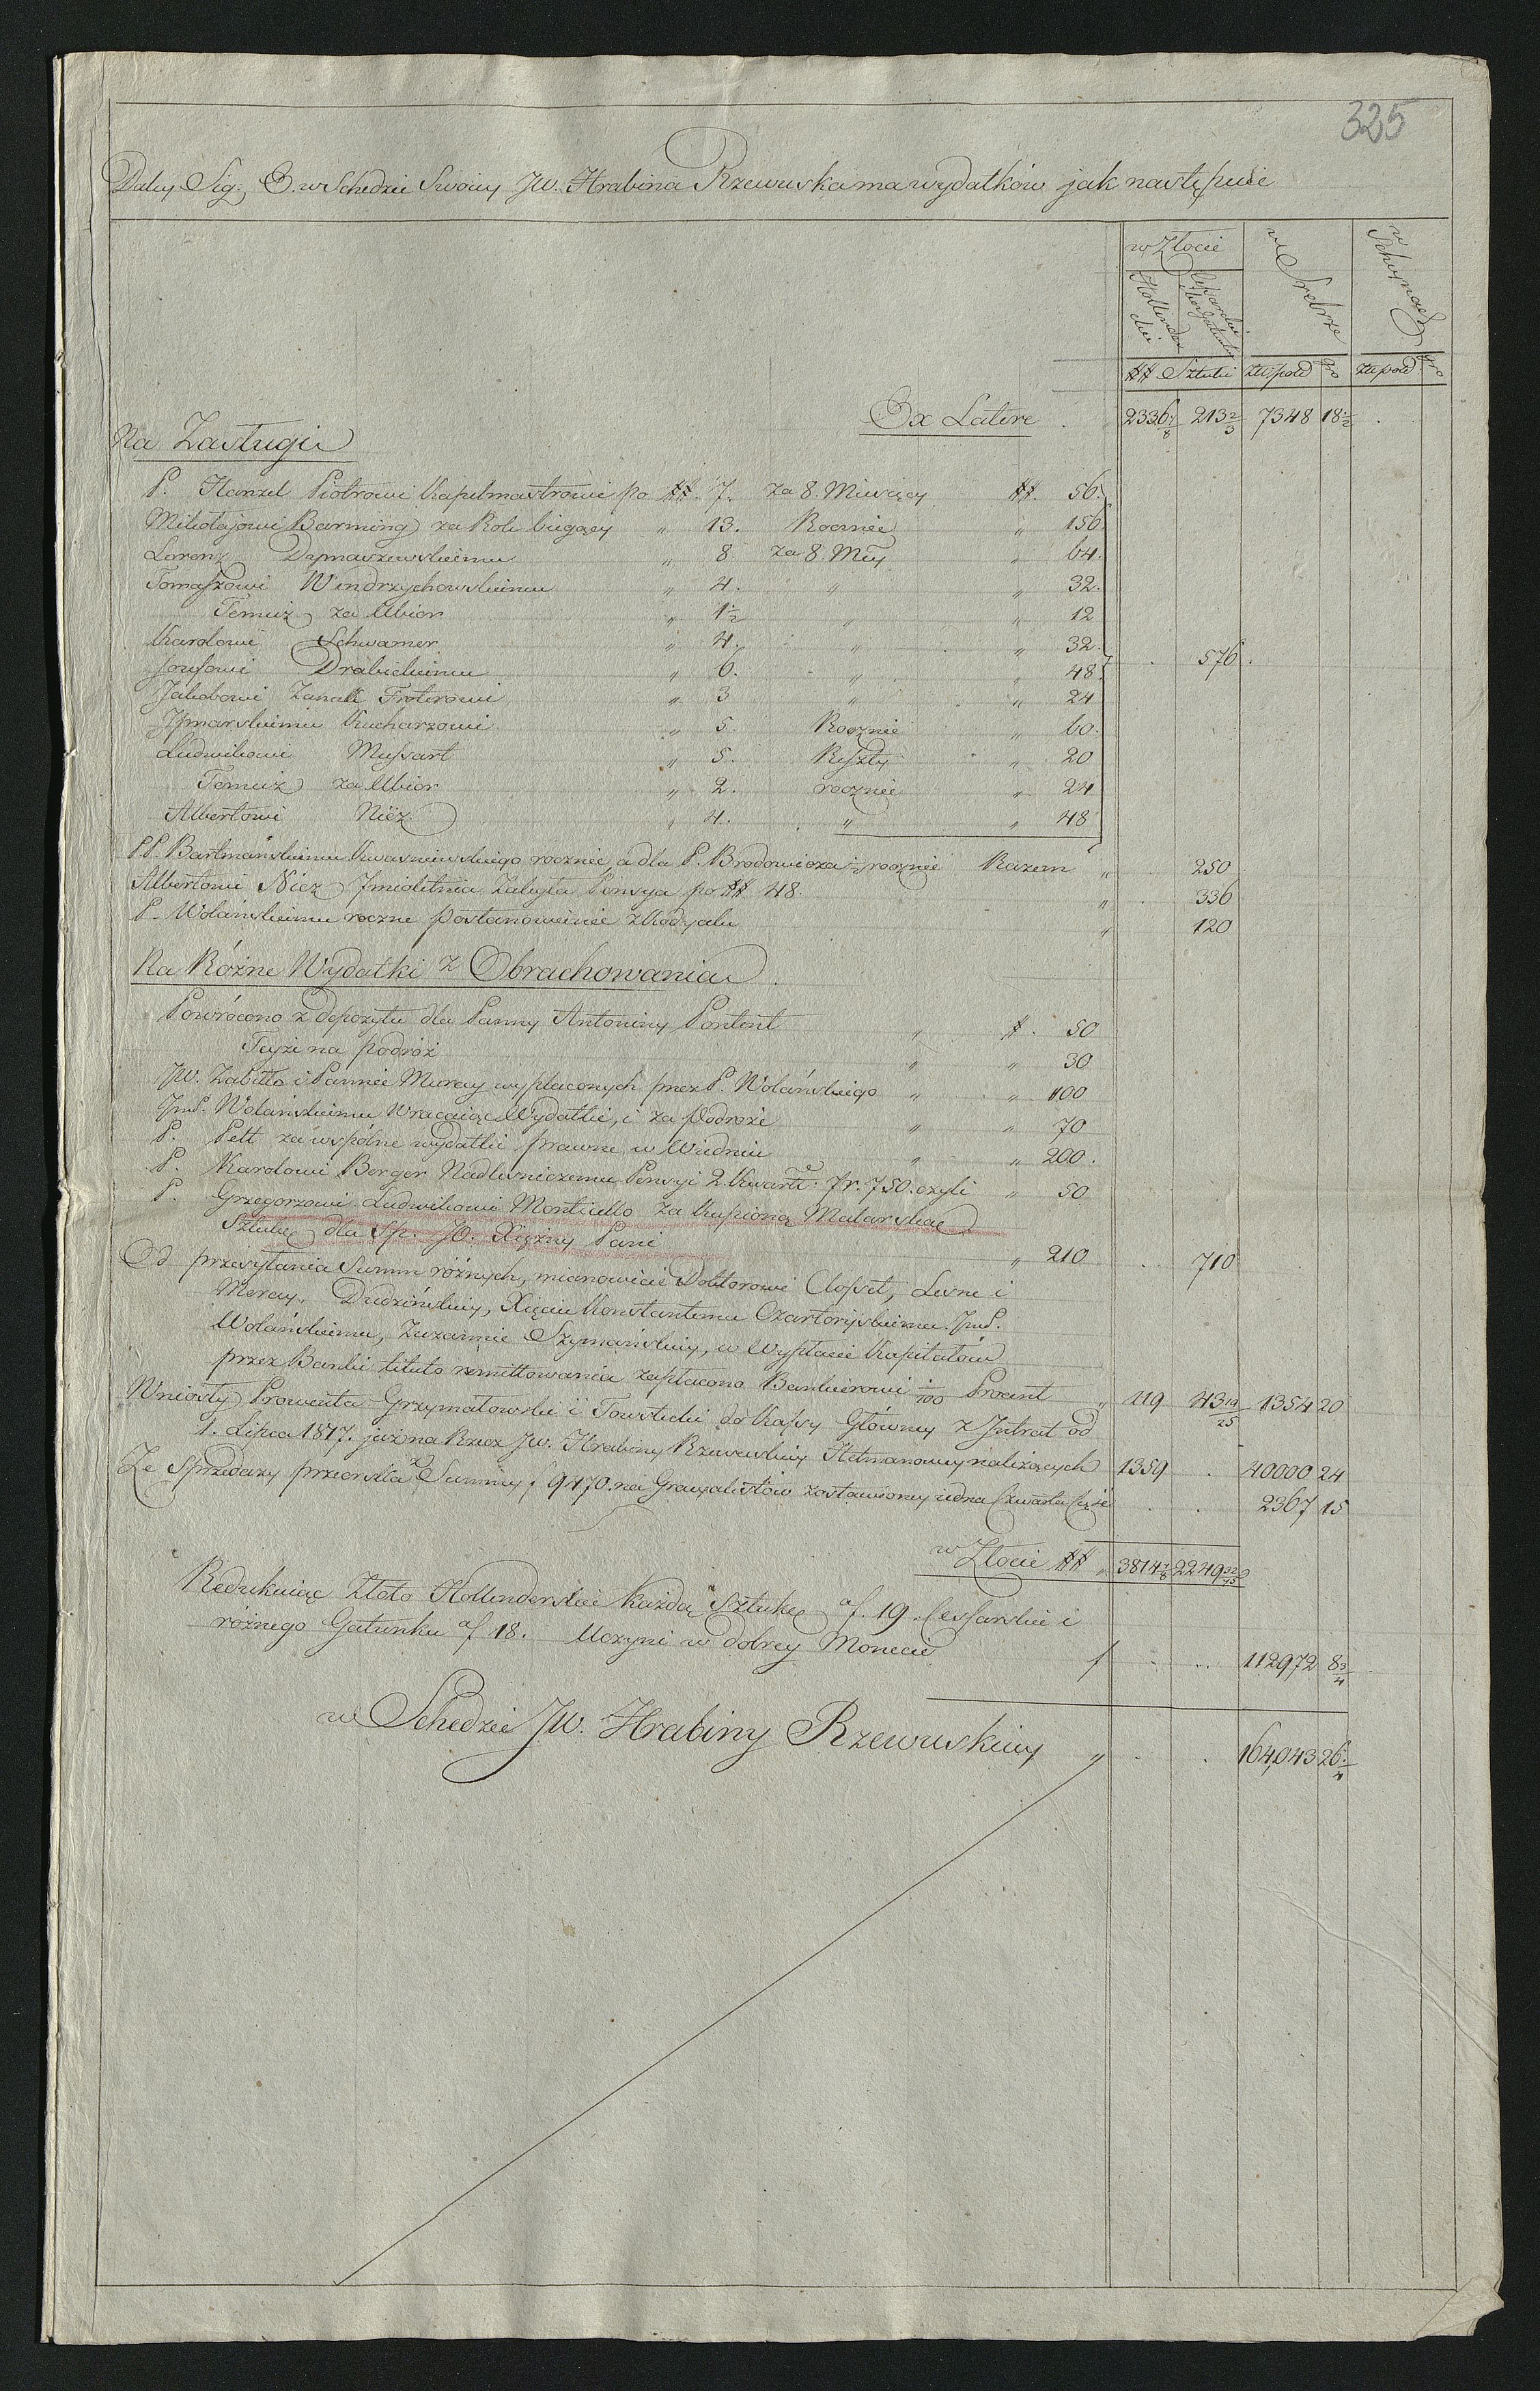 325
Daley Sig: B. w Schedzie Swoiey JW. Hrabina Rzewuska ma wydatków jak następuie
w Złocie
w Srebrze
w Schaynach
Hollenderskie
Cesarskie
## Sztuki złł pold gro złł pold gro
Ex Latere 2336 7/8 213 2/3 7348 18 1/2
Na Zasługi
P. Hanzel Piotrowi Kapelmastrowi po ##. 7. za 8. Miesięcy ##. 56.
Mikołajowi Barming za Rok biegący " 13. Rocznie " 156
Lorenz Dzmaszewskiemu " 8 za 8. Miey " 64.
Tomaszowi Windrzychowskiemu " 4. " " 32.
Temuż za Ubior " 1 1/2 " " 12
Karolowi Schwamer " 4. " " 32
Jozefowi Drabickiemu " 6. " " 48 576.
Jakobowi Zanak Froterowi " 3 " " 24
Izmarskiemu Kucharzowi " 5. Rocznie " 60.
Ludwikowi Mussart " 5. Reszty " 20
Temuż za Ubior " 2. rocznie " 24
Albertowi Niez " 4. " " 48
PP. Bartmańskiemu Kwasniewskiego rocznie, a dla P. Brodowicza 1/2 rocznie Razem " 250
Albertowi Niez 7mioletnia Zaległa Pensya po ## 48. " 336
P. Wolańskiemu roczne postanowienie z Kodyalu " 120
Na Różne Wydatki z Obrachowania
Powrócono z depozytu dla Panny Antoniny Pontent " #. 50
Teyże na podróż " " 30
JW. Zabiłło i Pannie Meray wypłaconych przez P. Wolańskiego " " 100
JmP. Wolańskiemu Wracaiąc Wydatki, i za Podroże " " 70
P. Pelt za wspólne wydatki prawne w Wiedniu " " 200.
P. Karolowi Berger Nadleśniczemu Pensyi 2. Kwart: fr. 750. czyli " 50
P. Grzegorzowi Ludwikowi Monticello za Kupioną Malarską
Sztukę dla Sp. JO. Xiężny Pani " 210 710
Od przesyłania Summ różnych, mianowicie Doktorowi Closset, Lesne i
Meray, Dudzińskiey, Xięciu Konstantemu Czartoryiskiemu, JmP.
Wolańskiemu, Zuzannie Szymańskiey, w Wypłacie Kapitałów
przez Banki titulo remittowania zapłacono Bankierowi 1/100 Procent " 119 43 19/25 1354 20
Wniosły Prowenta Grzymałowski i Towstecki do Kassy Główney z Intrat od
1. Lipca 1817. już na Rzecz JW. Hrabiny Rzewuskiey Hetmanowey należących 1359 . 40000 24
Ze Sprzedaży przeszła Summy f 9470. na Gracyalistów zostawioney iedna Czwarta Część . . 2367 15
w Złocie ## " 3814 7/8 2249 32/75
Redukuiąc Złoto Hollenderskie każdą Sztukę af. 19. Cessarskie i
różnego Gatunku af 18. Uczyni w dobrey Monecie f 112972 8 3/4
w Schedzie JW. Hrabiny Rzewuskiey " 164,043 26 1/4